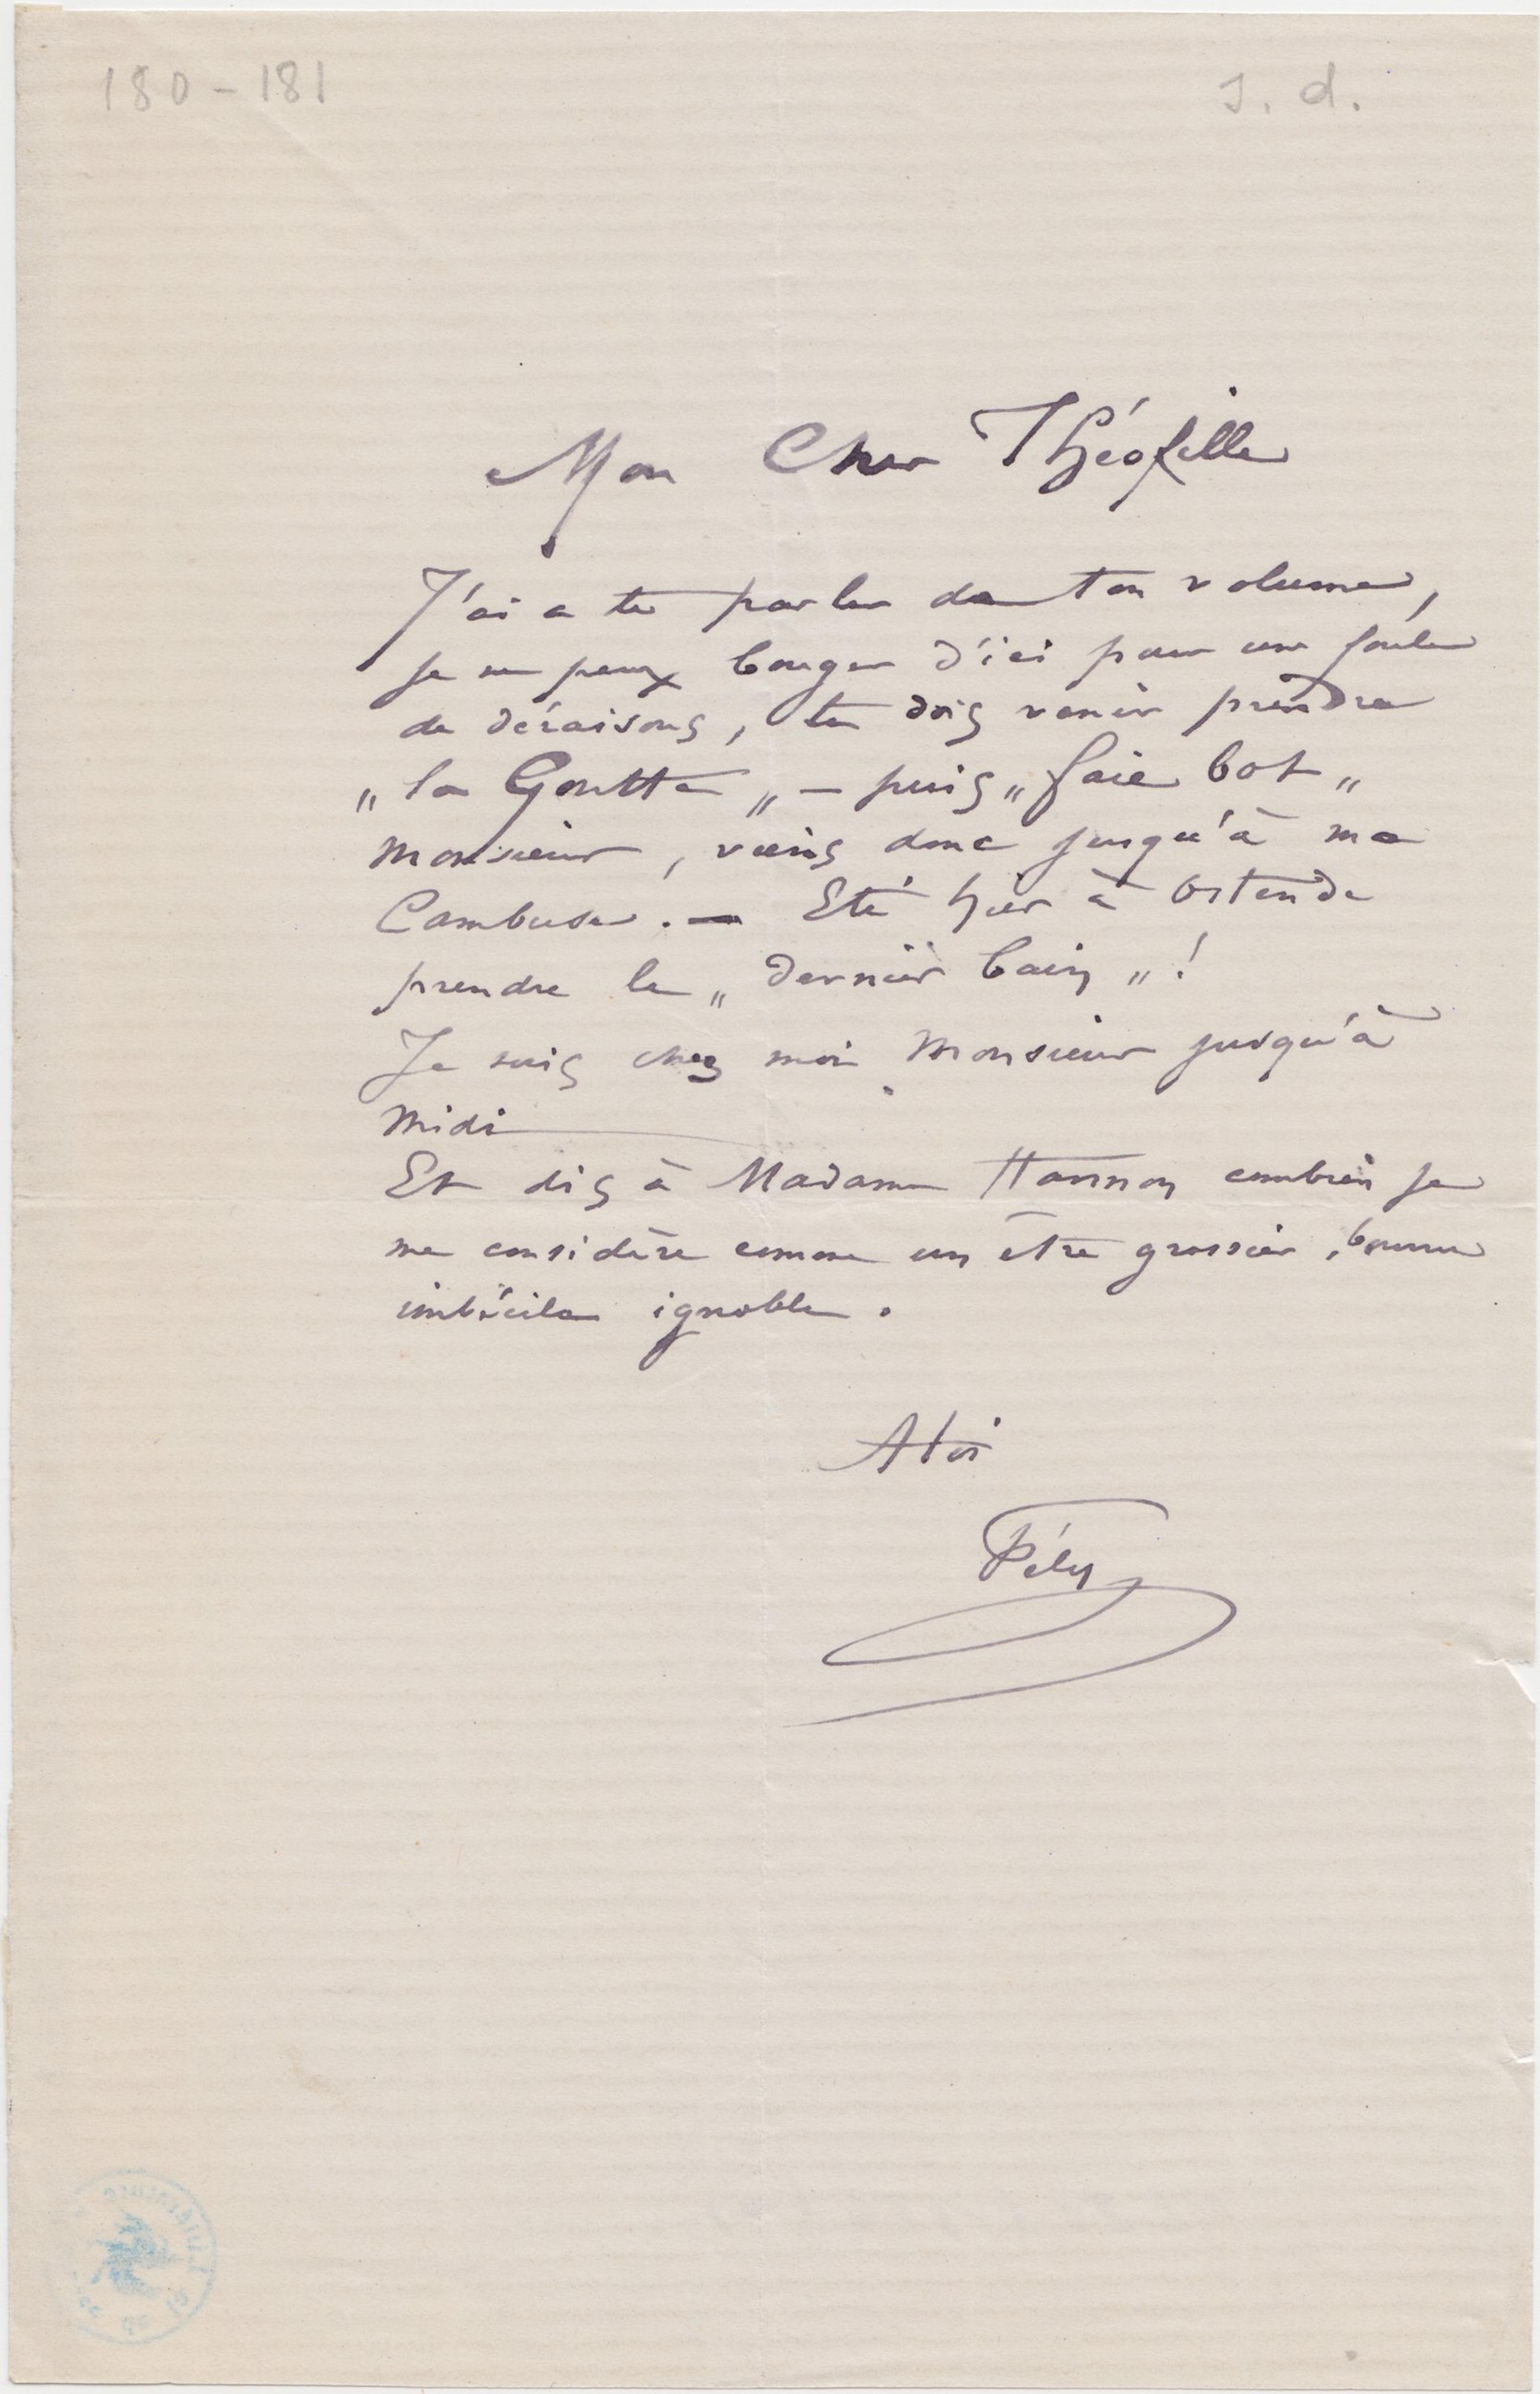 180-181
s. d.
Mon Cher Théofille
J'ai a te parler de ton volume,
je ne peux bouger d'ici pour une foule
de déraisons, tu dois venir prendre
„ la Goutte „ — puis „ faie bot „
monsieur, viens donc jusqu'à ma
Cambuse. — Eté hier à Ostende
prendre le „ dernier bain „ !
Je suis chez moi Monsieur jusqu'à
midi
Et dis à Madame Hannon combien je
me considère comme un être grossier, bourru
imbécile ignoble.
A toi
Fély